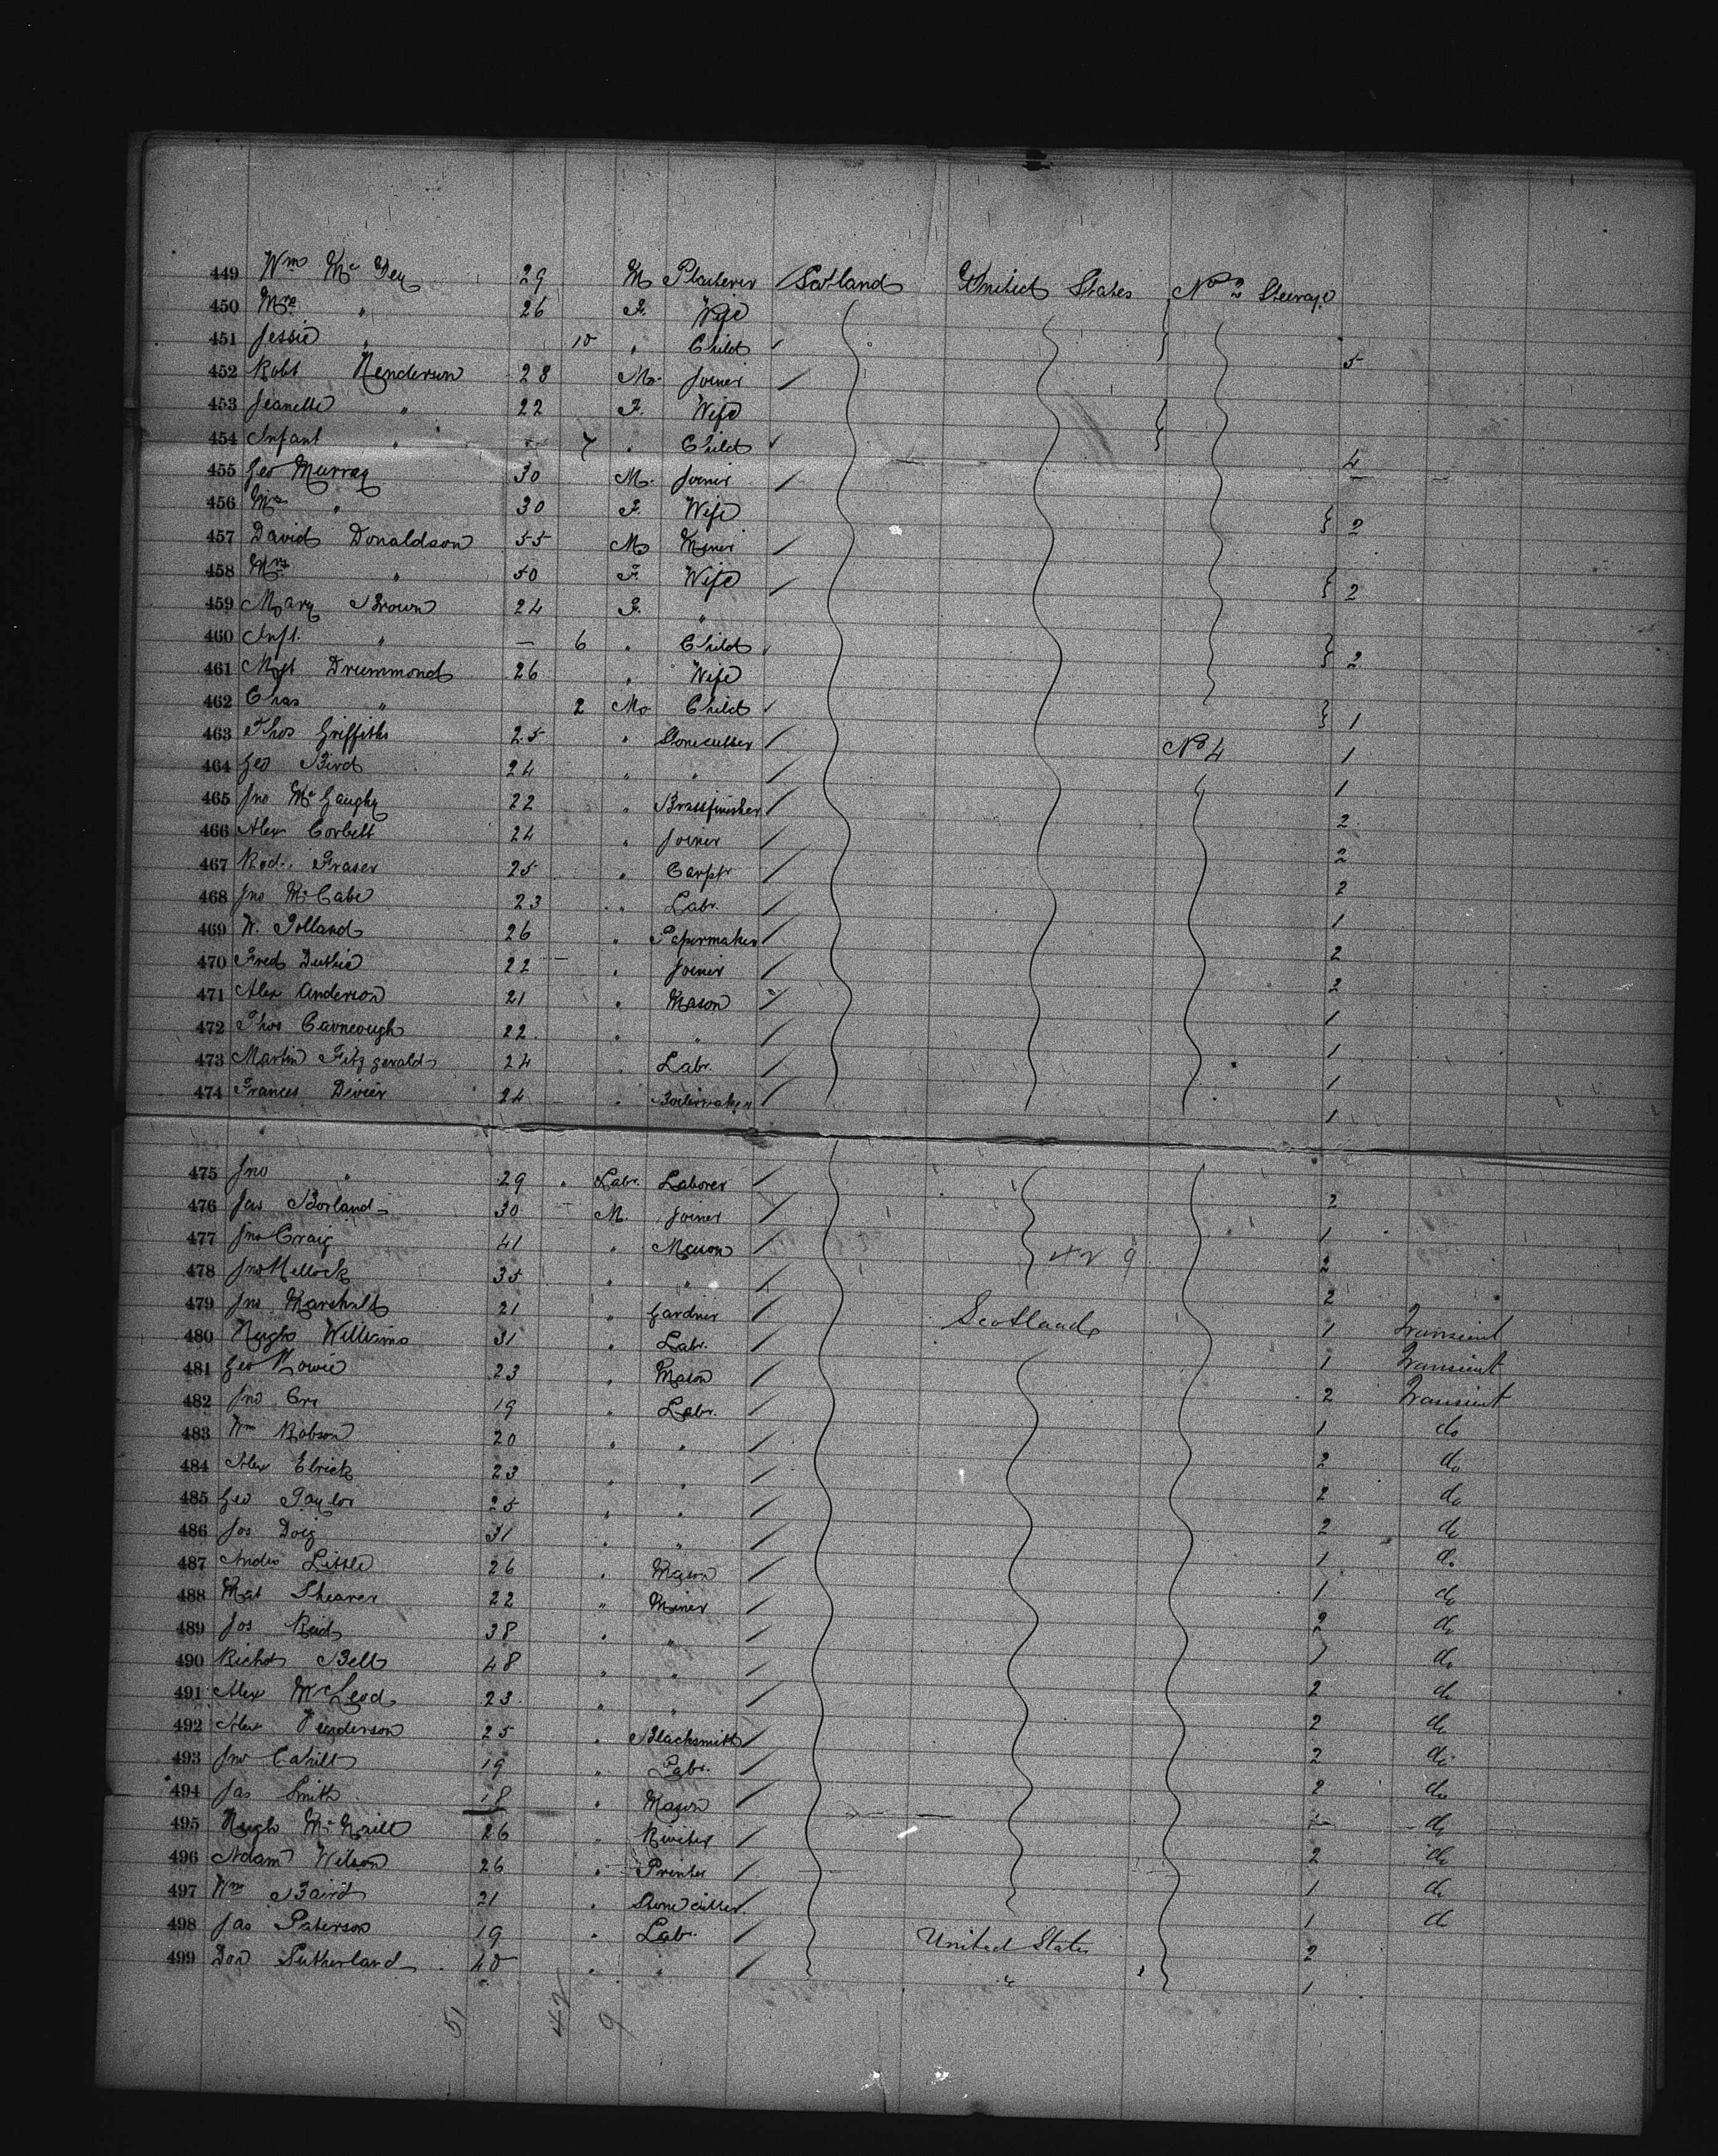 449 Wm Mc 29 M Plasterer Scotland United States No 2 Steerage
450 Mrs " 26 F. Wife
451 Jessie " 10 " Child 5
452 Robt Henderson 28 M. Joiner
453 Jeanette " 22 F. Wife
454 Infant " 7 " Child 4
455 Geo Murray 30 M. Joiner
456 Mrs " 30 F. Wife 2
457 David Donaldson 55 M Miner
458 Mrs " 50 F. Wife 2
459 Mary Brown 24 F. "
460 Inft. " — 6 " Child 2
461 Mgt Drummond 26 " Wife
462 Chas " 2 M Child 1
463 Thos Griffiths 25 " Stonecutter No 4 1
464 Geo Bird 24 " " 1
465 Jno McGaughy 22 " Brassfinisher 2
466 Alex Corbett 24 " Joiner 2
467 Rod. Fraser 25 " Carptr 2
468 Jno McCabe 23 " Labr. 1
469 W. 26 " Papermaker 2
470 Fred Duthie 22 " Joiner 2
471 Alex Anderson 21 " Mason 1
472 Thos 22 " " 1
473 Martin Fitzgerald 24 " Labr. 1
474 Frances Devier 24 " Boilermaker 1
475 Jno " 29 " Labr. Laborer 2
476 Jas Borland 30 M. Joiner 1
477 Jno Craig 41 " Mason 42 9 2
478 Jno 35 " " 2
479 Jno Marshall 21 " Gardner Scotland 1 Transient
480 Hugh Williams 31 " Labr. 1 Transient
481 Geo Howie 23 " Mason 2 Transient
482 Jno Orr 19 " Labr. 1 do
483 Wm Robson 20 " " 2 do
484 Alex Elrick 23 " " 2 do
485 Geo Taylor 25 " " 2 do
486 Jos Doig 31 " " 1 do
487 Andw Little 26 " Mason 1 do
488 Mat Shearer 22 " Miner 2 do
489 Jos Reid 38 " " 1 do
490 Richd Bell 48 " " 2 do
491 Alex McLeod 23 " " 2 do
492 Alex Henderson 25 " Blacksmith 2 do
493 Jno Cahill 19 " Labr. 2 do
494 Jas Smith 18 " Mason 1 do
495 Hugh McNeill 26 " Riveter 2 do
496 Adam Wilson 26 " Printer 1 do
497 Wm Baird 21 " Stonecutter 1 do
498 Jas Paterson 19 " Labr. United States 2
499 Don Sutherland 40 " " " 1
51 42 9